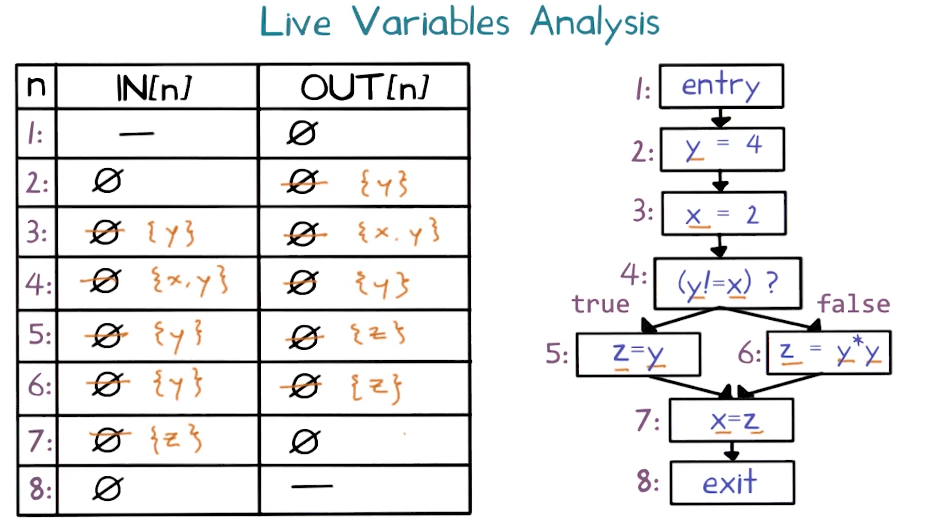 Live Variables Analysis
n IN[n] OUT[n]
1: — ∅
2: ∅ ∅ {y}
3: ∅ {y} ∅ {x.y}
4: ∅ {x,y} ∅ {y}
5: ∅ {y} ∅ {z}
6: ∅ {y} ∅ {z}
7: ∅ {z} ∅
8: ∅ —
1: entry
2: y = 4
3: x = 2
4: (y!=x) ?
true false
5: z=y 6: z = y*y
7: x=z
8: exit